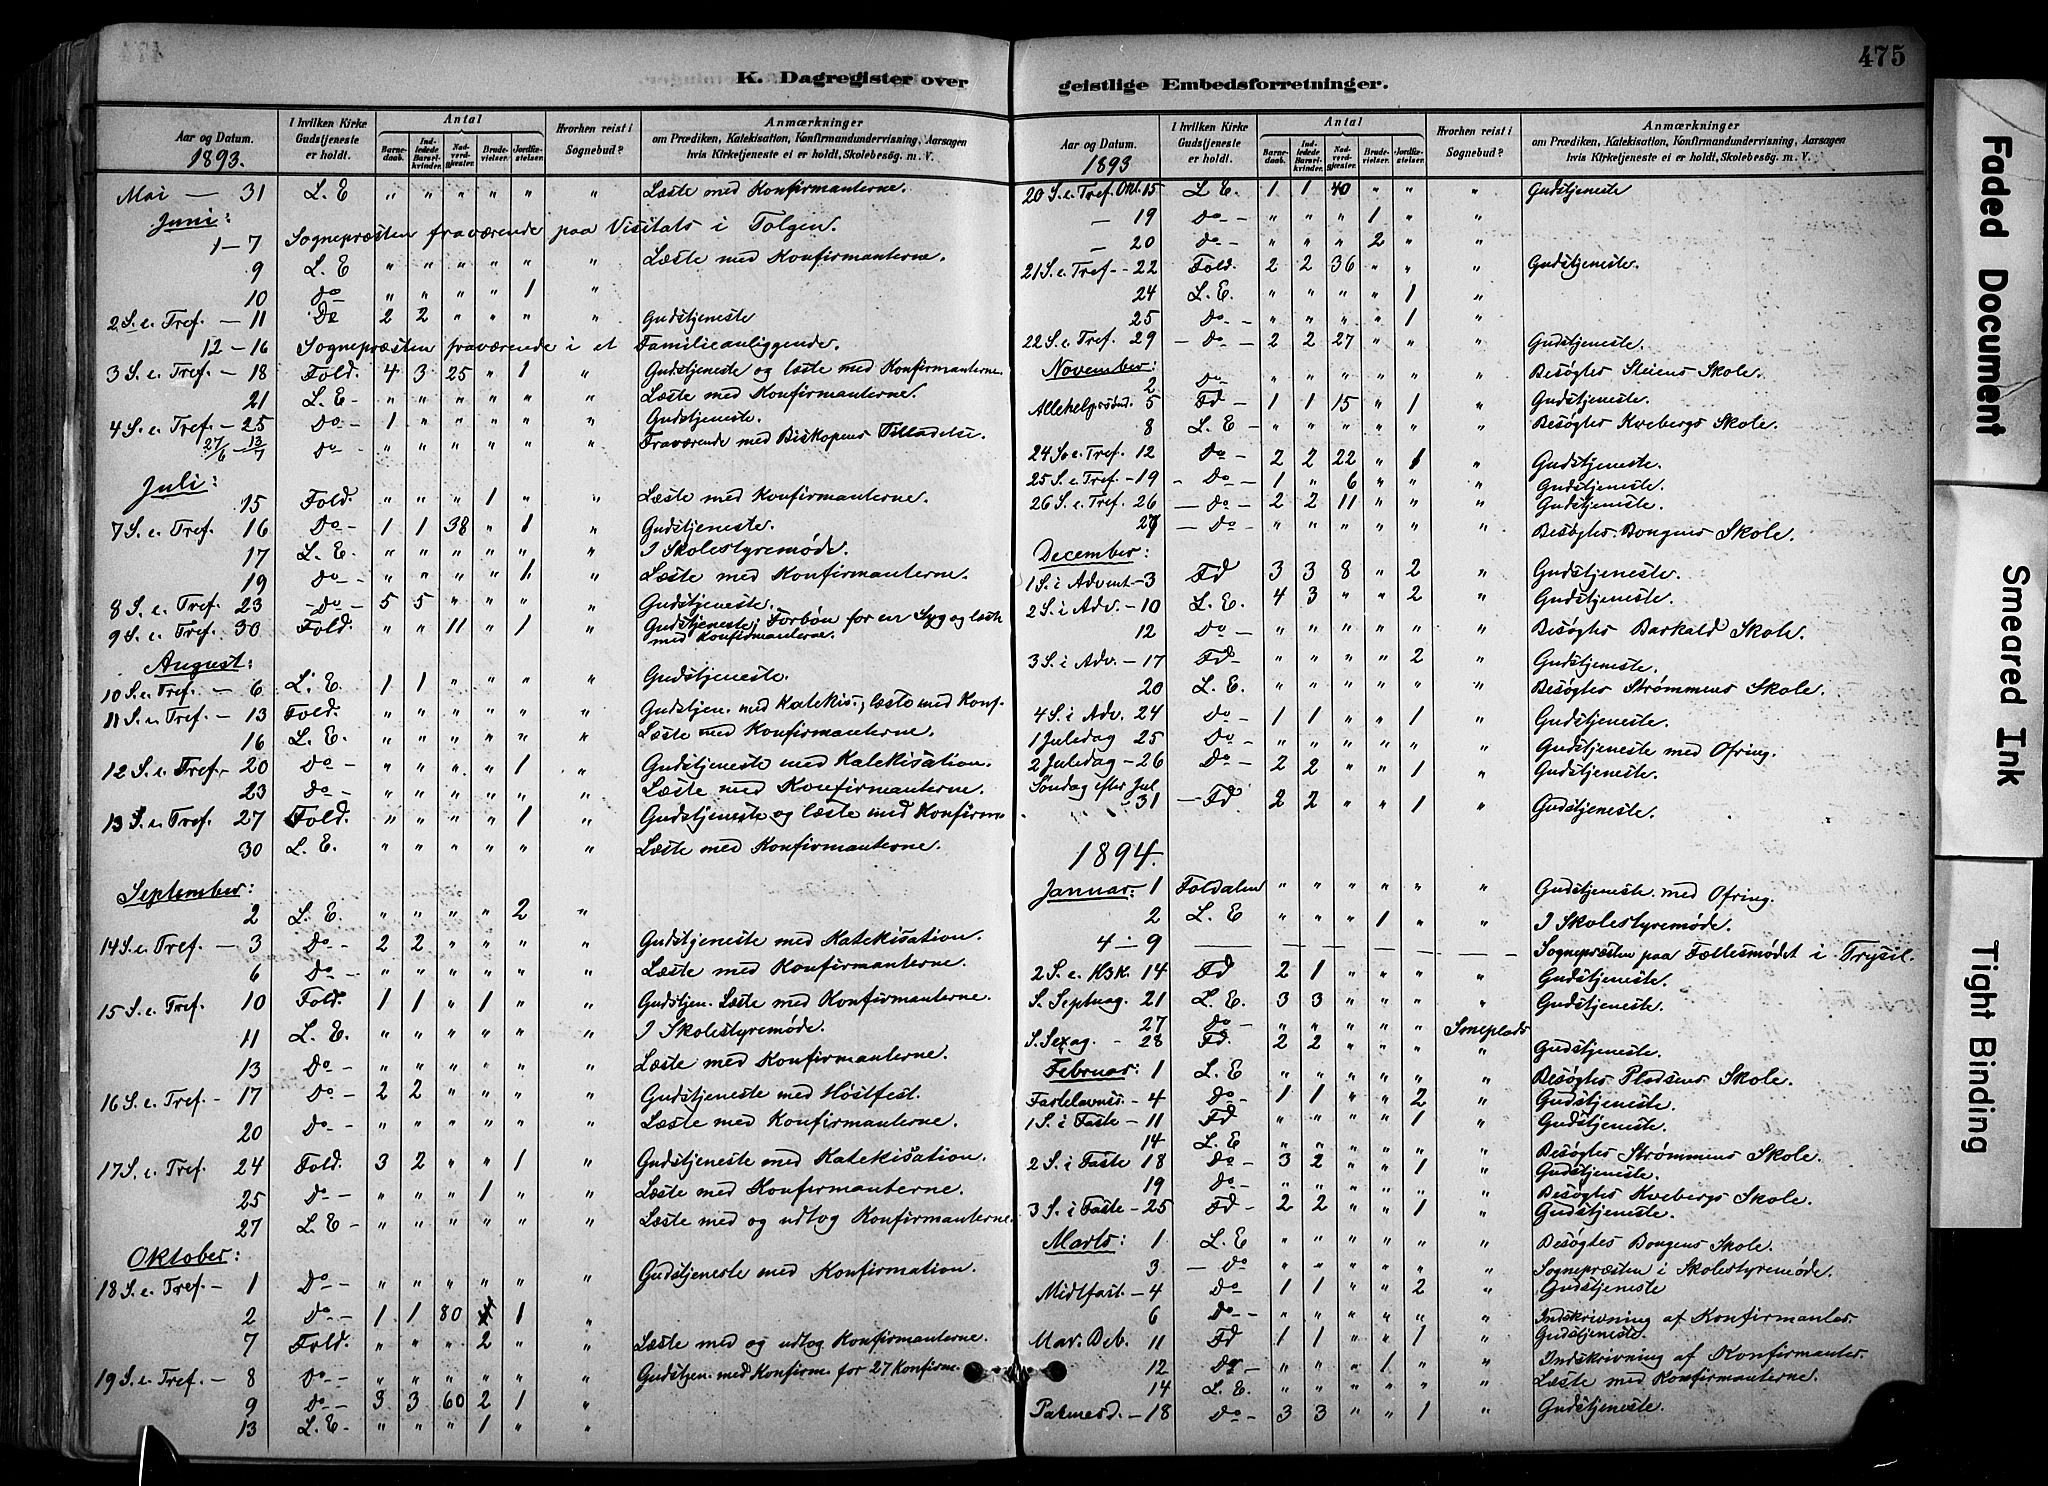 475
K. Dagregister over geistlige Embedsforretninger.
Aar og Datum. I hvilken Kirke Gudstjeneste er holdt. Antal Barnedaab. Indledede Barselkvinder. Nadvergjester. Brudevielser. Jordfæstelser. Hvorhen reist i Sognebud? Anmærkninger om Prædiken, Katekisation, Konfirmandundervisning, Aarsagen hvis Kirketjeneste ei er holdt, Skolebesøg. m. V.
1893.
Mai — 31 L. E " " " " " " Læste med Konfirmanterne.
Juni:
1–7 Sognepræsten fraværende paa Visitats i Tolgen.
9 L. E " " " " " " Læste med Konfirmanterne.
10 Do " " " " 1 "
2 S. e. Tref. — 11 Do 2 2 " " " " Gudstjeneste
12–16 Sognepræsten fraværende i et Familieanliggende.
3 S. e. Tref. — 18 Fold. 4 3 25 " 1 " Gudstjeneste og læste med Konfirmanterne.
21 L. E " " " " " " Læste med Konfirmanterne.
4 S. e. Tref. — 25 Do — 1 " " " " " Gudstjeneste.
27/6 — 13/7 Do — " " " " " " Fraværende med Biskopens Tilladelse.
Juli:
15 Fold. " " " 1 " " Læste med Konfirmanterne.
7 S. e. Tref. 16 Do — 1 1 38 " 1 " Gudstjeneste.
17 L. E. " " " " " " I Skolestyremøde.
19 Do — " " " " 1 " Læste med Konfirmanterne.
8 S. e. Tref. 23 Do — 5 5 " " " " Gudstjeneste.
9 S. e. Tref. 30 Fold. " " 11 " 1 " Gudstjeneste, Forbøn for en Syg og læste
med Konfirmanterne.
August:
10 S. e. Tref. — 6 L. E. 1 1 " " " " Gudstjeneste.
11 S. e. Tref. — 13 Fold. " " " " " " Gudstjen. med Katekis., læste med Konf.
16 L. E. " " " " " " Læste med Konfirmanterne.
12 S. e. Tref. — 20 Do — " " " " 1 " Gudstjeneste med Katekisation.
23 Do — " " " " " " Læste med Konfirmanterne.
13 S. e. Tref. 27 Fold. " " " " 1 " Gudstjeneste og læste med Konfirm.
30 L. E. " " " " " " Læste med Konfirmanterne.
September:
2 L. E. " " " " 2 "
14 S. e. Tref. — 3 Do — 2 2 " " " " Gudstjeneste med Katekisation.
6 Do — " " " " " " Læste med Konfirmanterne.
15 S. e. Tref. 10 Fold. 1 1 " 1 " " Gudstjen. Læste med Konfirmanterne.
11 L. E. " " " " " " I Skolestyremøde.
13 Do — " " " " " " Læste med Konfirmanterne.
16 S. e. Tref. — 17 Do — 2 2 " " " " Gudstjeneste med Høstfest.
20 Do — " " " " " " Læste med Konfirmanterne.
17 S. e. Tref. 24 Fold. 3 2 " " 1 " Gudstjeneste med Katekisation.
25 Do — " " " 1 " " Læste med Konfirmanterne.
27 L. E — " " " " " " Læste med og udtog Konfirmanterne.
Oktober:
18 S. e. Tref. — 1 Do — " " " " " " Gudstjeneste med Konfirmation.
2 Do — 1 1 80 1 "
7 Fold. " " " 2 " " Læste med og udtog Konfirmanterne.
19 S. e. Tref. — 8 Do — " " " " " " Gudstjen. med Konfirm. for 27 Konfirm.
9 Do — 3 3 60 2 1 "
13 L. E — " " " 1 " "
Aar og Datum. I hvilken Kirke Gudstjeneste er holdt. Antal Barnedaab. Indledede Barselkvinder. Nadvergjester. Brudevielser. Jordfæstelser. Hvorhen reist i Sognebud? Anmærkninger om Prædiken, Katekisation, Konfirmandundervisning, Aarsagen hvis Kirketjeneste ei er holdt, Skolebesøg. m. V.
1893
20 S. e. Tref. Okt. 15 L. E. 1 1 40 " " " Gudstjeneste
— 19 Do — " " " 1 " "
— 20 Do — " " " 2 " "
21 S. e. Tref. — 22 Fold. 2 2 36 " " " Gudstjeneste.
24 L. E. " " " " 1 "
25 Do — " " " " 1 "
22 S. e. Tref. 29 — Do — 2 2 27 " " " Gudstjeneste.
November:
2 Do " " " " " " Besøgtes Steiens Skole.
Allehelgensd. 5 Fd 1 1 15 " 1 " Gudstjeneste.
8 L. E " " " " " " Besøgtes Kvebergs Skole.
24 S. e. Tref. 12 Do — 2 2 22 " 1 " Gudstjeneste.
25 S. e. Tref. — 19 — Do — 1 " 6 " " " Gudstjeneste.
26 S. e. Tref. — 26 — Do — 2 2 11 " " " Gudstjeneste.
27 — Do — " " " " " " Besøgtes Bongens Skole.
December:
1 S. i Advent — 3 Fd 3 3 8 " 2 " Gudstjeneste.
2 S. i Adv. — 10 L. E. 4 3 " " 2 " Gudstjeneste.
12 Do — " " " " " " Besøgtes Barkald Skole.
3 S. i Adv. — 17 Fd — " " " " 2 " Gudstjeneste.
20 L. E. " " " " " " Besøgtes Strømmens Skole.
4 S. i Adv. 24 Do — 1 1 " " 1 " Gudstjeneste.
1 Juledag 25 Do — " " " " " " Gudstjeneste med Ofring.
2 Juledag — 26 Do — 2 2 " " 1 " Gudstjeneste.
Søndag efter Jul
31 — Fd 2 2 " " 1 " Gudstjeneste.
1894.
Januar: 1 Foldalen " " " " " " Gudstjeneste med Ofring.
2 L. E " " " 1 " " I Skolestyremøde.
4–9 — — — — — — — Sognepræsten paa Fællesmødet i Trysil.
2 S. e. H3K. 14 Fd 2 1 " " " " Gudstjeneste.
S. Septuag. 21 L. E. 3 3 " " " " Gudstjeneste.
27 Do — " " " " "
S. Sexag. — 28 Fd. 2 2 " " " " Gudstjeneste.
Februar: 1 L. E " " " " " " Besøgtes Pladsens Skole.
Fastelavnss. — 4 Do — 1 1 " " 2 " Gudstjeneste.
1 S. i Faste — 11 Fd " " " " 1 " Gudstjeneste.
14 L. E " " " " " " Besøgtes Strømmens Skole.
2 S. i Faste 18 Do — 3 2 " " 1 " Gudstjeneste.
19 Do — " " " " " " Besøgtes Kvebergs Skole.
3 S. i Faste — 25 Fd — 2 2 " " 1 " Gudstjeneste.
Marts: 1 L. E " " " " " " Besøgtes Bongens Skole.
3 — Do " " " " " " Sognepræsten i Skolestyremøde.
Midtfast. — 4 Do 1 1 " " 2 " Gudstjeneste
6 Do — " " " " " " Indskrivning af Konfirmanter.
Mar. Beb. 11 Fd 1 1 " " 1 " Gudstjeneste.
12 Do — " " " 1 " " Indskrivning af Konfirmanter.
14 L. E. " " " " " " Læste med Konfirmanterne.
Palmesd. — 18 Do — 3 3 " " 1 " Gudstjeneste.
Faded Document
Smeared Ink
Tight Binding